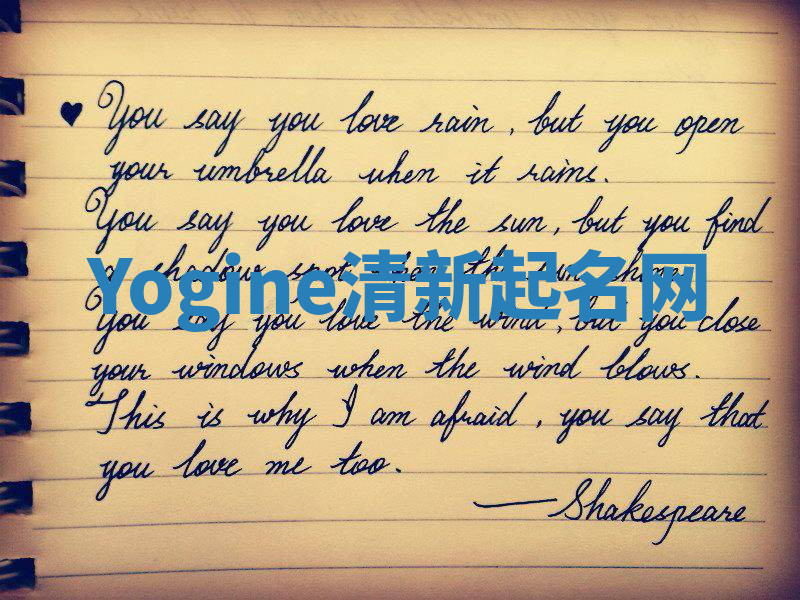 ♥ You say you love rain, but you open
your umbrella when it rains.
You say you love the sun, but you find
a shadow spot when the sun shines.
Yogine清新起名网
You say you love the wind, but you close
your windows when the wind blows.
This is why I am afraid, you say that
you love me too.
—Shakespeare